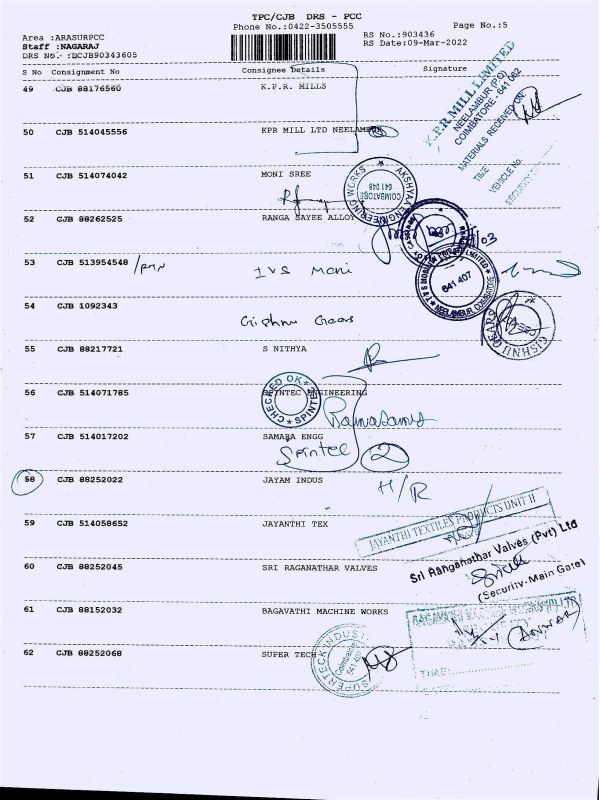 TPC/CJB DRS - PCC
Phone No.:0422-3505555
Page No.:5
Area :ARASURPCC
RS No.:903436
Staff :NAGARAJ
RS Date:09-Mar-2022
DRS No. :DCJB90343605
S No Consignment No Consignee Details Signature
49 CJB 88176560 K.P.R. MILLS
K.P.R MILL LIMITED
NEELAMBUR (P.O)
COIMBATORE - 641 062
MATERIALS RECEIVED ON
TIME
VEHICLE No.
SECURITY
50 CJB 514045556 KPR MILL LTD NEELAMBUR
51 CJB 514074042 MONI SREE
AKSHYAA ENGINEERING WORKS
COIMBATORE
641 048
52 CJB 88262525 RANGA SAYEE ALLOY
53 CJB 513954548 IVS Moni
641 407
NEELAMBUR, COIMBATORE
54 CJB 1092343 Gishnu Gears
GISHNU GEARS
55 CJB 88217721 S NITHYA
56 CJB 514071785 SPINTEC ENGINEERING
CHECKED OK
SPINTEC
Ramasamy
57 CJB 514017202 SAMARA ENGG
Spintec 2
58 CJB 88252022 JAYAM INDUS H/R
59 CJB 514058652 JAYANTHI TEX
JAYANTHI TEXTILES PRODUCTS UNIT II
60 CJB 88252045 SRI RAGANATHAR VALVES
Sri Ranganathar Valves (Pvt) Ltd
(Security-Main Gate)
61 CJB 88152032 BAGAVATHI MACHINE WORKS
TIME:
62 CJB 88252068 SUPER TECH
SUPERTECK INDUS
Coimbatore
641 407